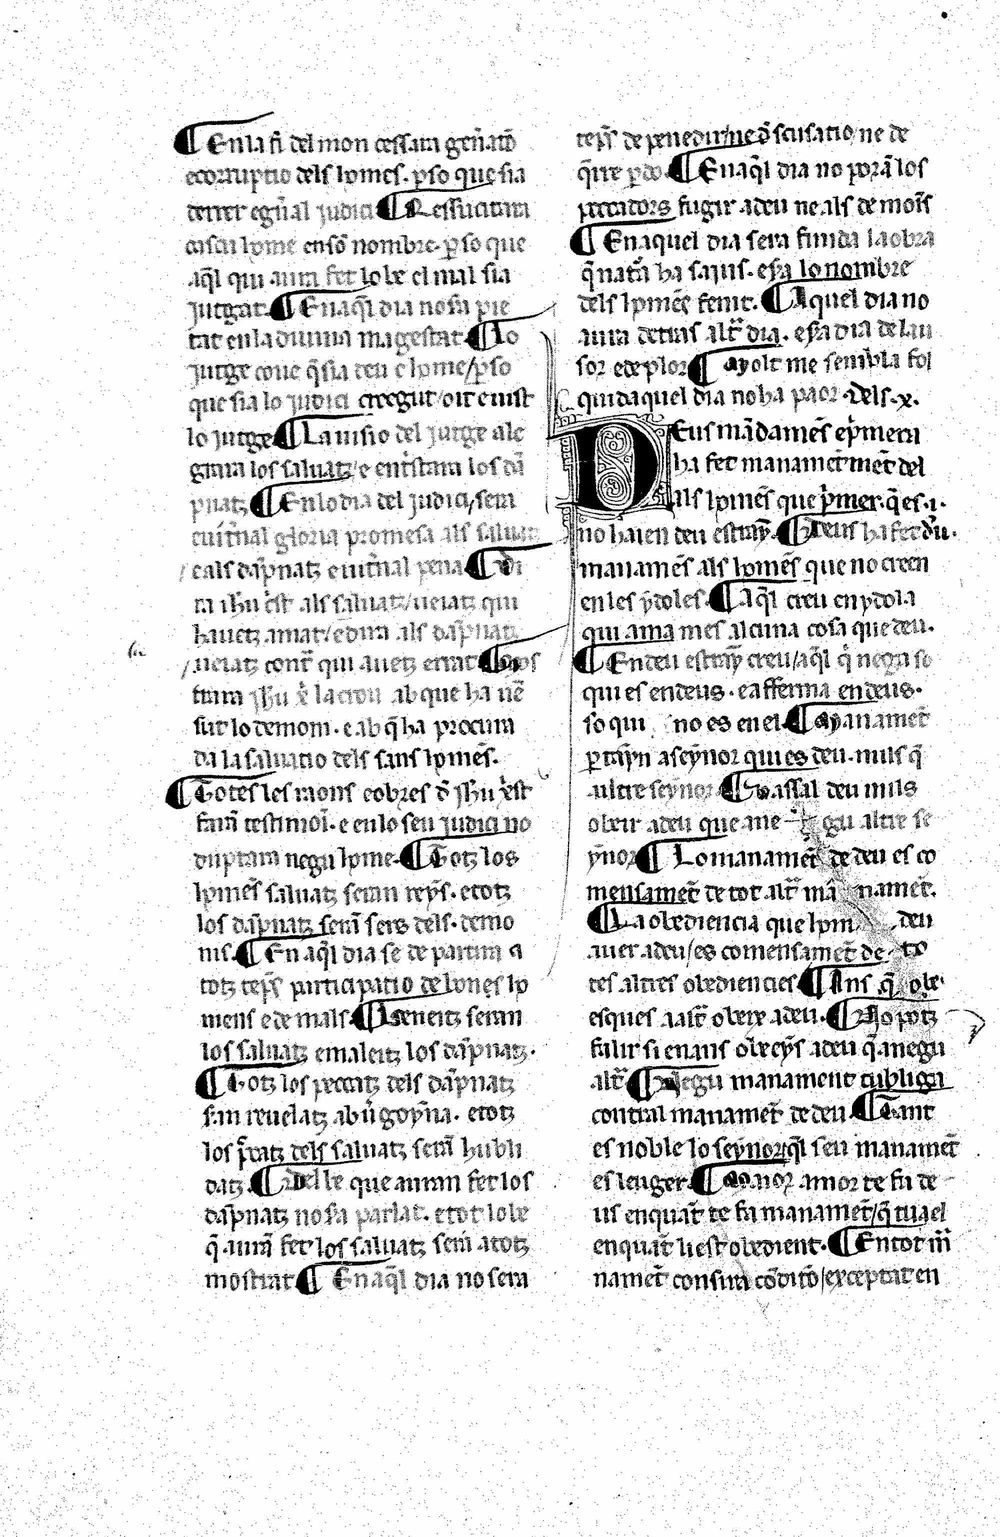 ¶ En la fi del mon cessara gen̄ato
e corruptio dels homes. ꝑso que sia
derrer e gn̄al judici ¶ Ressucitara
cascu home en sō nombre. ꝑ so que
aq̄l qui aura fet lo be el mal sia
jutgat. ¶ En aq̄l dia no sa pie
tat en la diuina magestat. ¶ Lo
jutge coue q̄ sia deu e home / ꝑso
que sia lo judici creegut / oit e uist
lo jutge ¶ La uisio del jutge ale
grara los saluatz / e entͥstara los dā
pnatz ¶ En lo dia del judici / sera
euit̄nal gloria promesa als saluatz
/ e als dāpnatz euit̄nal pena ¶ Di
ra ihū c̄st als saluatz / ueiatz qui
hauetz amat / e dira als dāpnatz
/ ueiatz cont̄ qui auetz errat ¶ Mos
trara ihū x̄ la crou ab que ha uē
sut lo demoni. e ab q̄ ha procura
da la saluatio dels sans homēs.
¶ Totes les raons e obres d̄ ihū xp̄st
faran testimoī. e en lo seu judici no
duptara negu home. ¶ Totz los
homēs saluatz seran reys. e totz
los dāpnatz serā sers dels demo
nis. ¶ En aq̄l dia se departira a
totz temps participatio de bones ho
mens e de mals. ¶ Beneitz seran
los saluatz e maleitz los dāpnatz.
¶ Totz los peccatz dels dāpnatz
sran reuelatz ab ū goyna. e totz
los p̄catz dels saluatz serā hubli
datz. ¶ Del be que auran fet los
dāpnatz no sa parlat. e tot lo be
q̄ aurā fet los saluatz sera a totz
mostrat ¶ En aq̄l dia no sera
temps de penedir / ne d̄ scusatio / ne de
q̄rre ꝑdo. ¶ En aq̄l dia no porā los
peccadors fugir a deu ne als demonis
¶ En aquel dia sera finida la obra
q̄ natā ha sa jus. e sa lo nombre
dels homēs fenit. ¶ Aquel dia no
aura detras altr̄ dia. e sa dia de lau
sor e de plor ¶ Molt me sembla fol
qui daquel dia no ha paor. Dels .x.
Deus mādamēs e pͥmera
ha fet manamet̄ met̄ del
als homēs que pͥmer. q̄ es .i.
no haien deu estrāy. ¶ Deus ha fet du.
manamēs als homēs que no creen
en les ydoles. ¶ Aq̄l creu en ydola
qui ama mes alcuna cosa que deu.
¶ En deu estrāy creu / aq̄l qͥ nega so
qui es en deus. e afferma en deus.
so qui no es en el. ¶ Manamet̄
ꝑtayn a seynor qui es deu. mils q̄
altre seynor ¶ Vassal deu mils
obeir a deu que a negu altre se
ynor ¶ Lo manamet̄ de deu es co
mensamet̄ de tot altr̄ mā namet̄.
¶ La obediencia que hom deu
auer a deu / es comensamet̄ de to
tes altres obediencies ¶ Ans q̄ obe
esques a altr̄ obeix a deu. ¶ No potz
falir si enans obeeys a deu q̄ a negu
altr̄ ¶ Negu manament tubliga
contral manamet̄ de deu. ¶ Tant
es noble lo seynor q̄l seu manamet̄
es leuger. ¶ Manor amor te fa de
us enquāt te fa manamet̄ / q̄ tu a el
enquāt li est obedient. ¶ En tot m̄
namet̄ consira cōditō / exceptat en